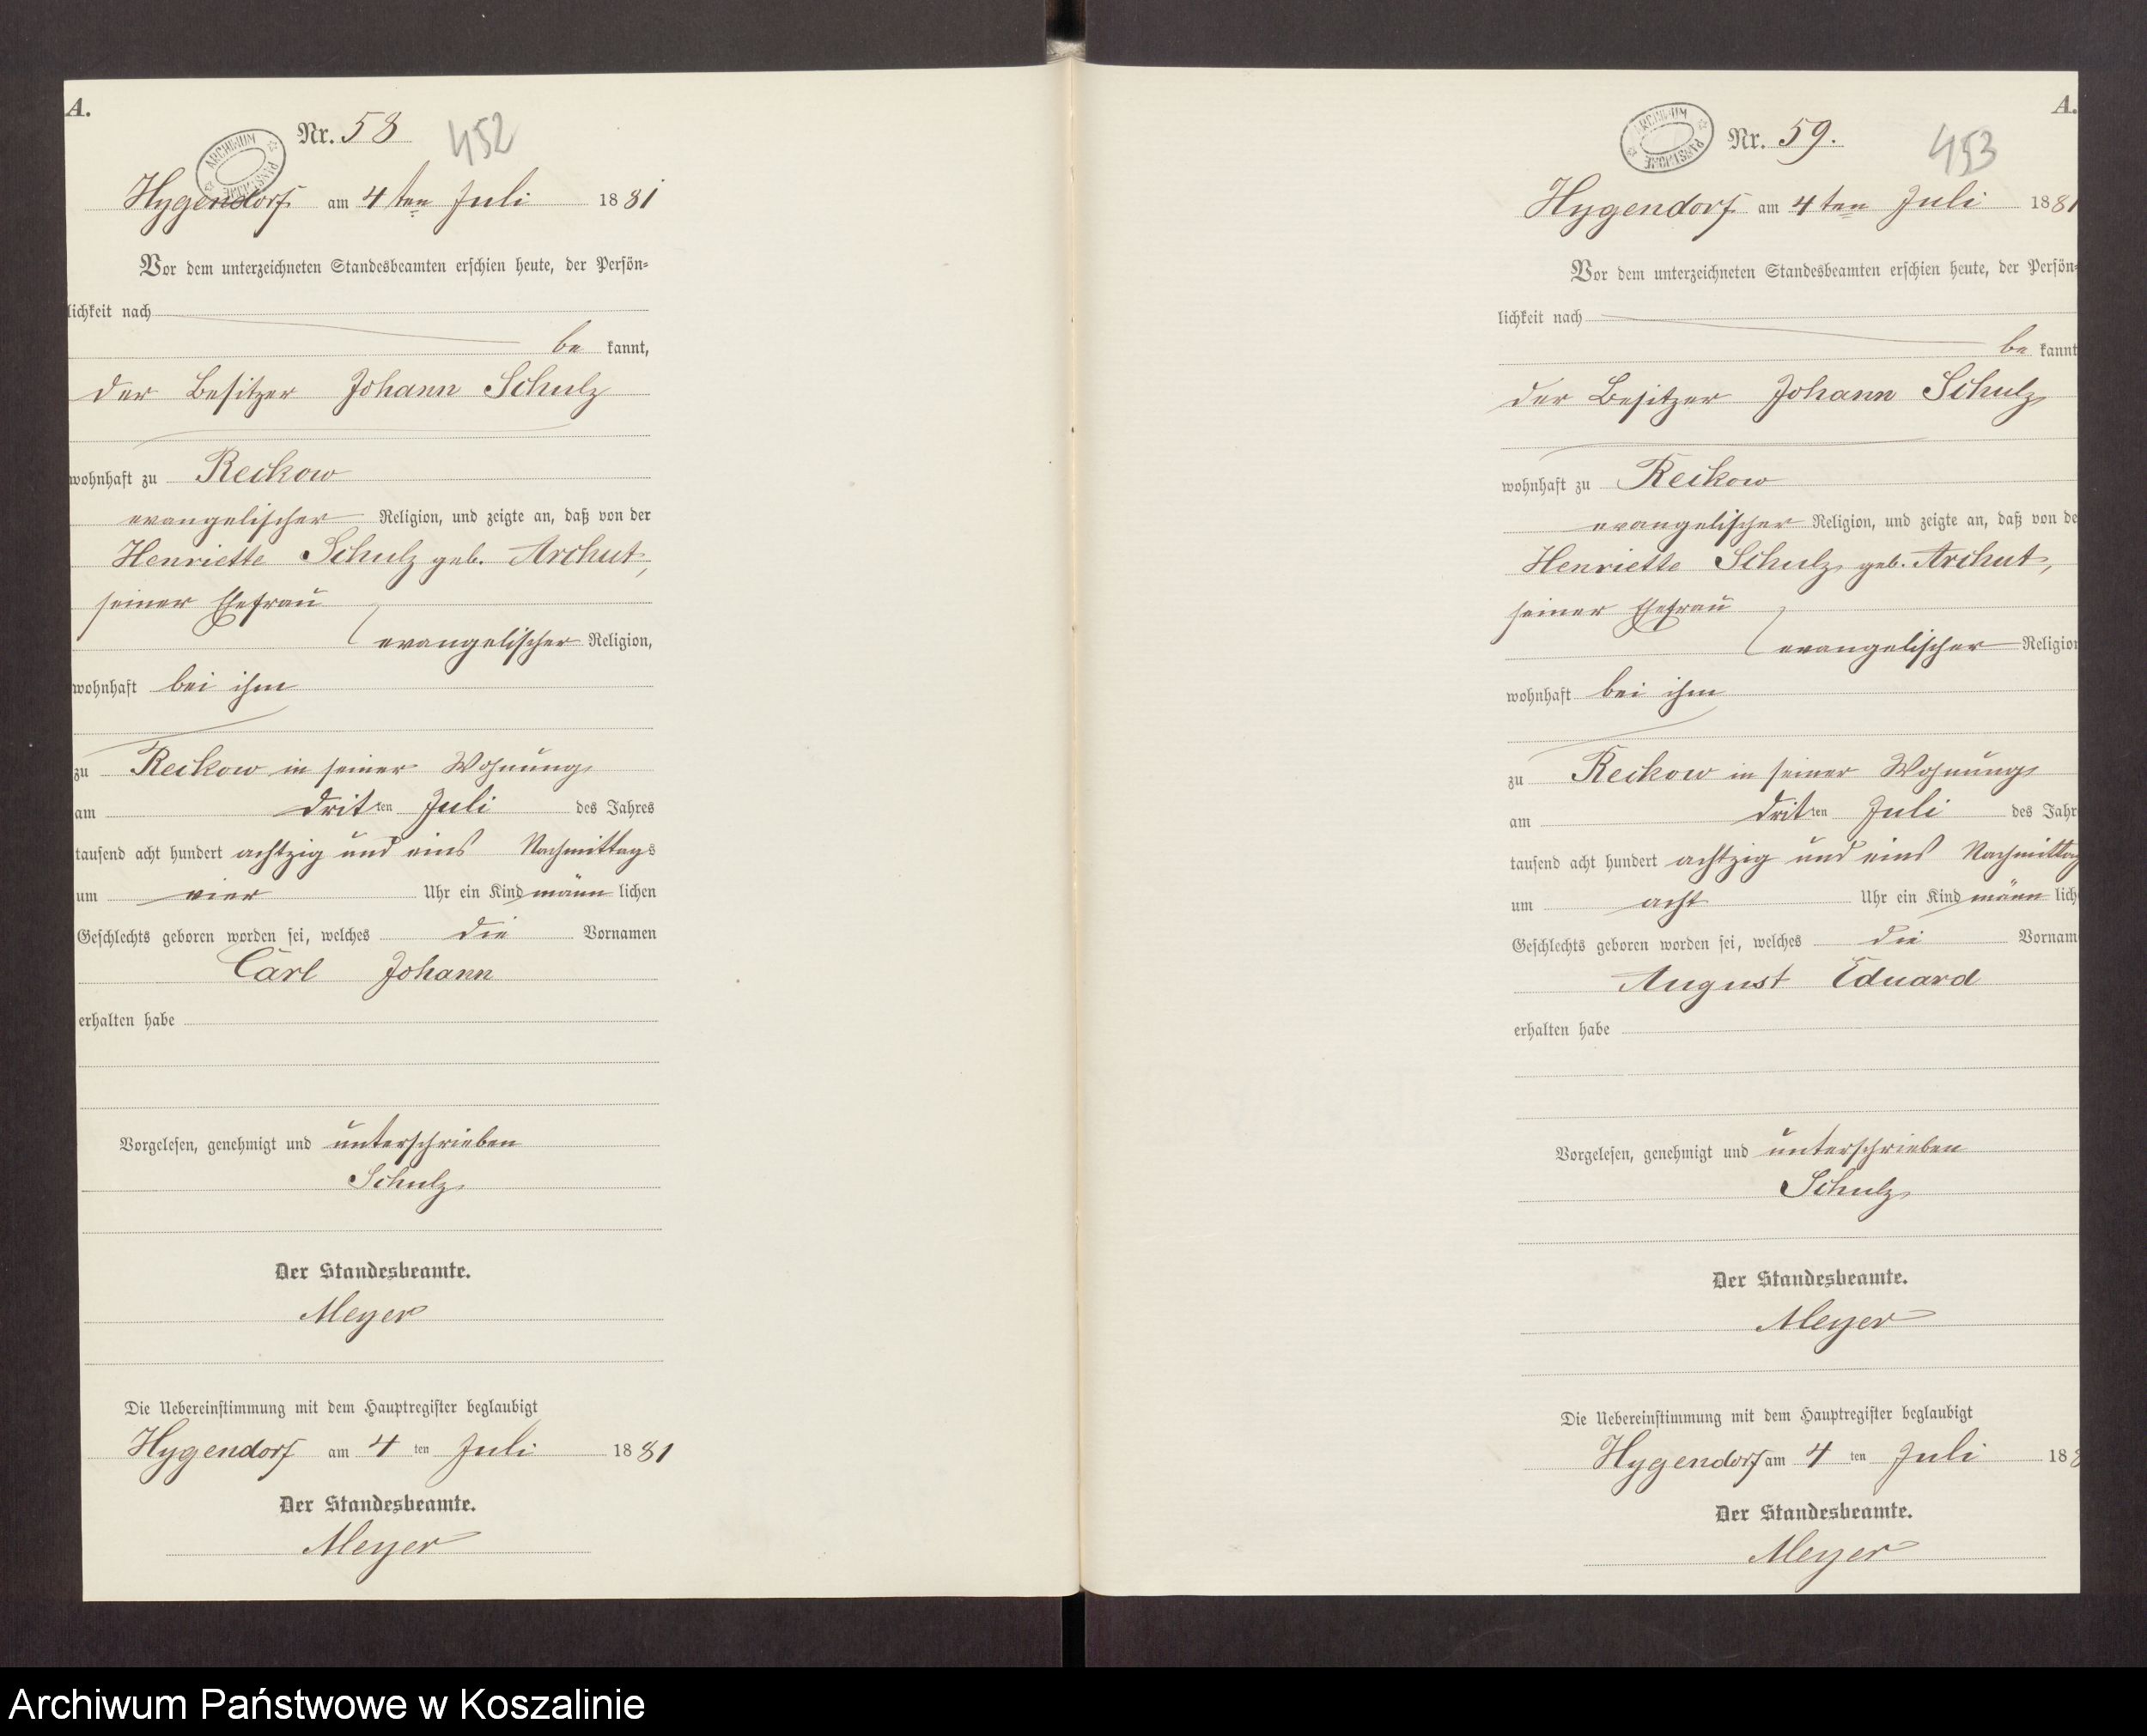 A.
Nr. 58
452
ARCHIWUM PAŃSTWOWE
Hygendorf am 4ten Juli 1881
Vor dem unterzeichneten Standesbeamten erschien heute, der Persön=
lichkeit nach
be kannt,
der Besitzer Johann Schulz
wohnhaft zu Reckow
evangelischer Religion, und zeigte an, daß von der
Henriette Schulz geb. Archut,
seiner Ehefrau
evangelischer Religion,
wohnhaft bei ihm
zu Reckow in seiner Wohnung
am dritten Juli des Jahres
tausend acht hundert achtzig und eins Nachmittags
um vier Uhr ein Kind männ lichen
Geschlechts geboren worden sei, welches die Vornamen
Carl Johann
erhalten habe
Vorgelesen, genehmigt und unterschrieben
Schulz
Der Standesbeamte.
Meyer
Die Uebereinstimmung mit dem Hauptregister beglaubigt
Hygendorf am 4 ten Juli 1881
Der Standesbeamte.
Meyer
A.
Nr. 59.
453
ARCHIWUM PAŃSTWOWE
Hygendorf am 4ten Juli 1881
Vor dem unterzeichneten Standesbeamten erschien heute, der Persön=
lichkeit nach
be kannt
der Besitzer Johann Schulz
wohnhaft zu Reckow
evangelischer Religion, und zeigte an, daß von de
Henriette Schulz geb. Archut,
seiner Ehefrau
evangelischer Religion
wohnhaft bei ihm
zu Reckow in seiner Wohnung
am dritten Juli des Jahr
tausend acht hundert achtzig und eins Nachmittag
um acht Uhr ein Kind männ lich
Geschlechts geboren worden sei, welches die Vornam
August Eduard
erhalten habe
Vorgelesen, genehmigt und unterschrieben
Schulz
Der Standesbeamte.
Meyer
Die Uebereinstimmung mit dem Hauptregister beglaubigt
Hygendorf am 4 ten Juli 188
Der Standesbeamte.
Meyer
Archiwum Państwowe w Koszalinie